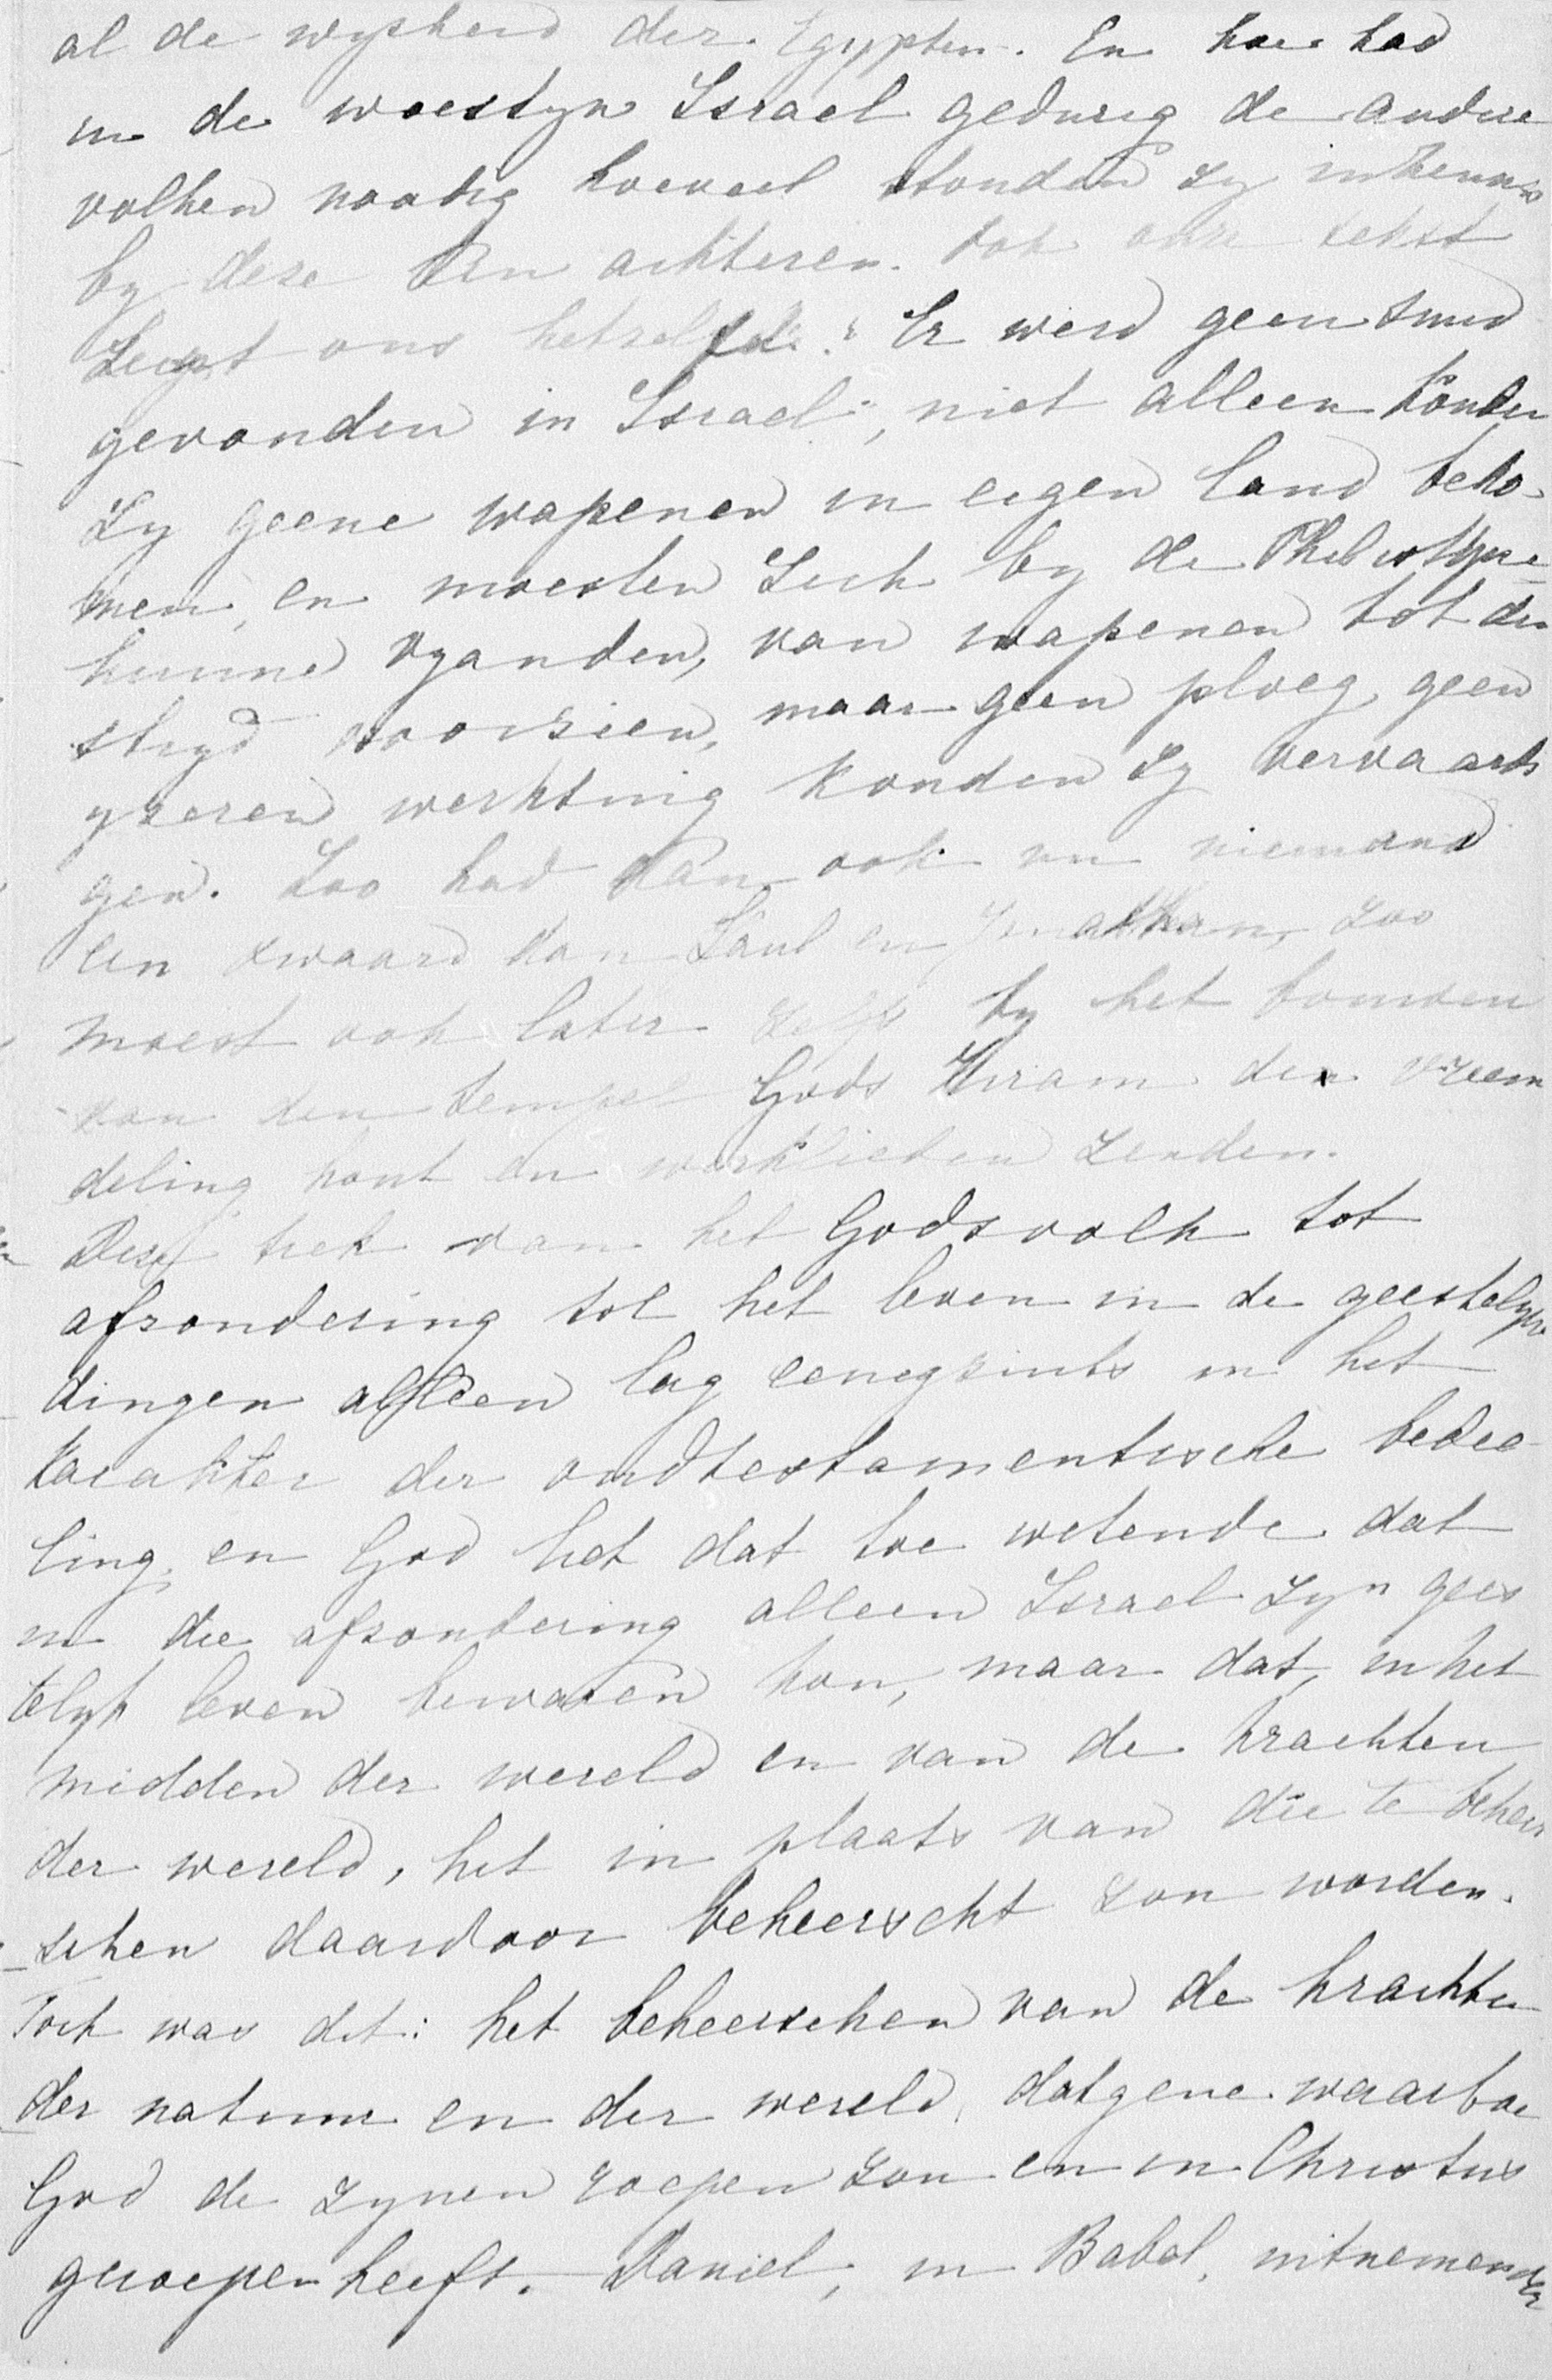 al de wysheid der Egypten. En hoe had
in de woestyn Israel gedurig de andere
volken noodig hoeveel stonden zy in kennis
by deze ten achteren. Ook onze tekst
zegt ons hetzelfde. "Er werd geen smid
gevonden in Israel", niet alleen konden
zy geene wapenen in eigen land beko-
men, en moesten zich by de Philistyne
hunne vyanden, van wapenen tot den
stryd voorzien, maar geen ploeg, geen
yzeren werktuig konden zy vervaardi
gen. Zoo had dan ook nu niemand
een zwaard dan Saul en Jonathan, zoo
moest ook later zelfs by het bouwen
van den tempel Gods Hiram den vreem
deling hout en werklieden zenden.
Deze trek van het Godsvolk tot
afzondering tot het leven in de geestelyke
dingen alleen lag eenigzints in het
karakter der oudtestamentische bedee
ling, en God liet dat toe wetende dat
in die afzondering alleen Israel zyn gees
telyk leven bewaren kon, maar dat, in het
midden der wereld en van de krachten
der wereld, het in plaats van die te beheer
schen daardoor beheerscht zou worden.
Toch was dit: het beheerschen van de krachten
der natuur en der wereld, datgene waartoe
God de zynen roepen zou en in Christus
geroepen heeft. Daniel, in Babel, uitnemender